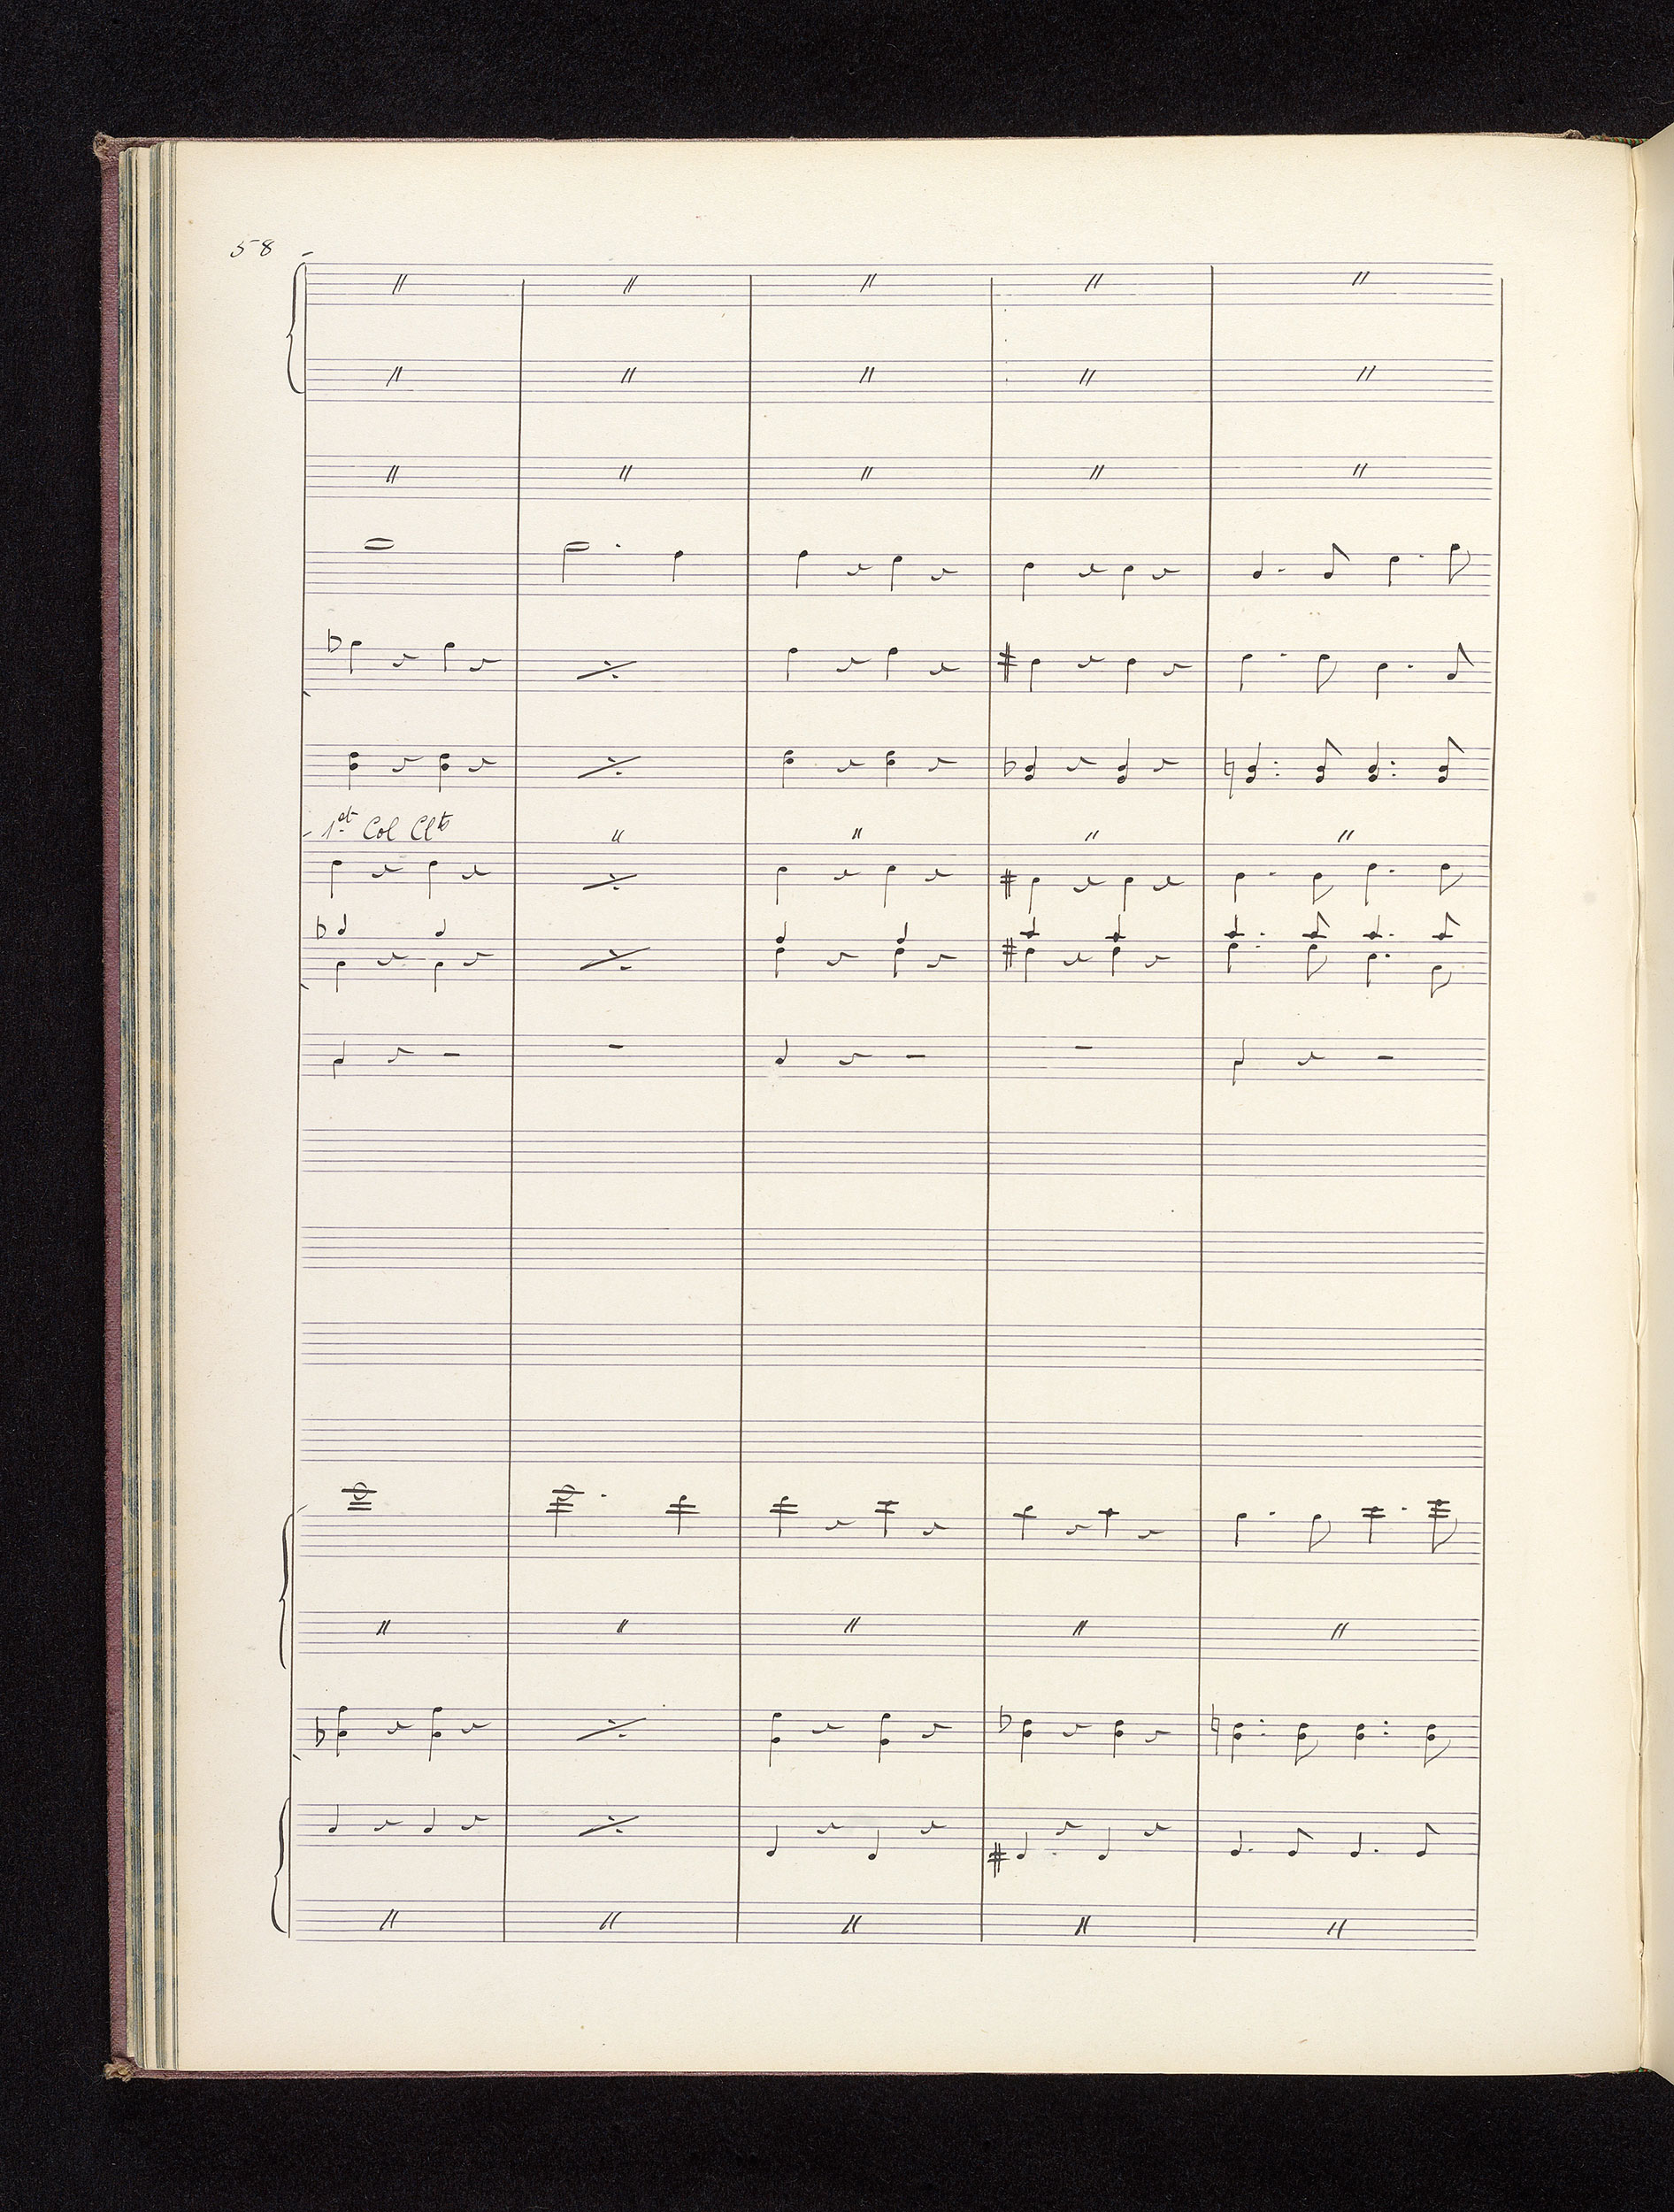 58
1et Col Clts